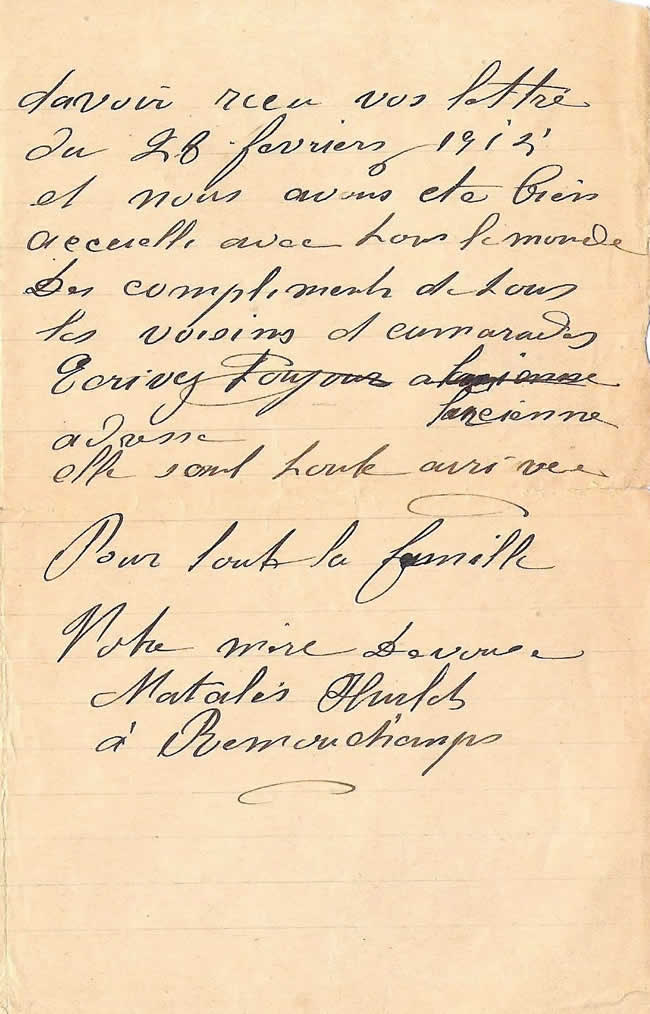 davoir recu vos lettre
du 28 fevriers 1912
et nous avons ete bien
accuelli avec tous le monde
Des compliments de tous
les voisins et camarades
Ecrivez Toujours a lancienne
lancienne
adresse
elle sont toute arrivée
Pour toute la famille
Votre mere Devouee
Natalis
à Remouchamps